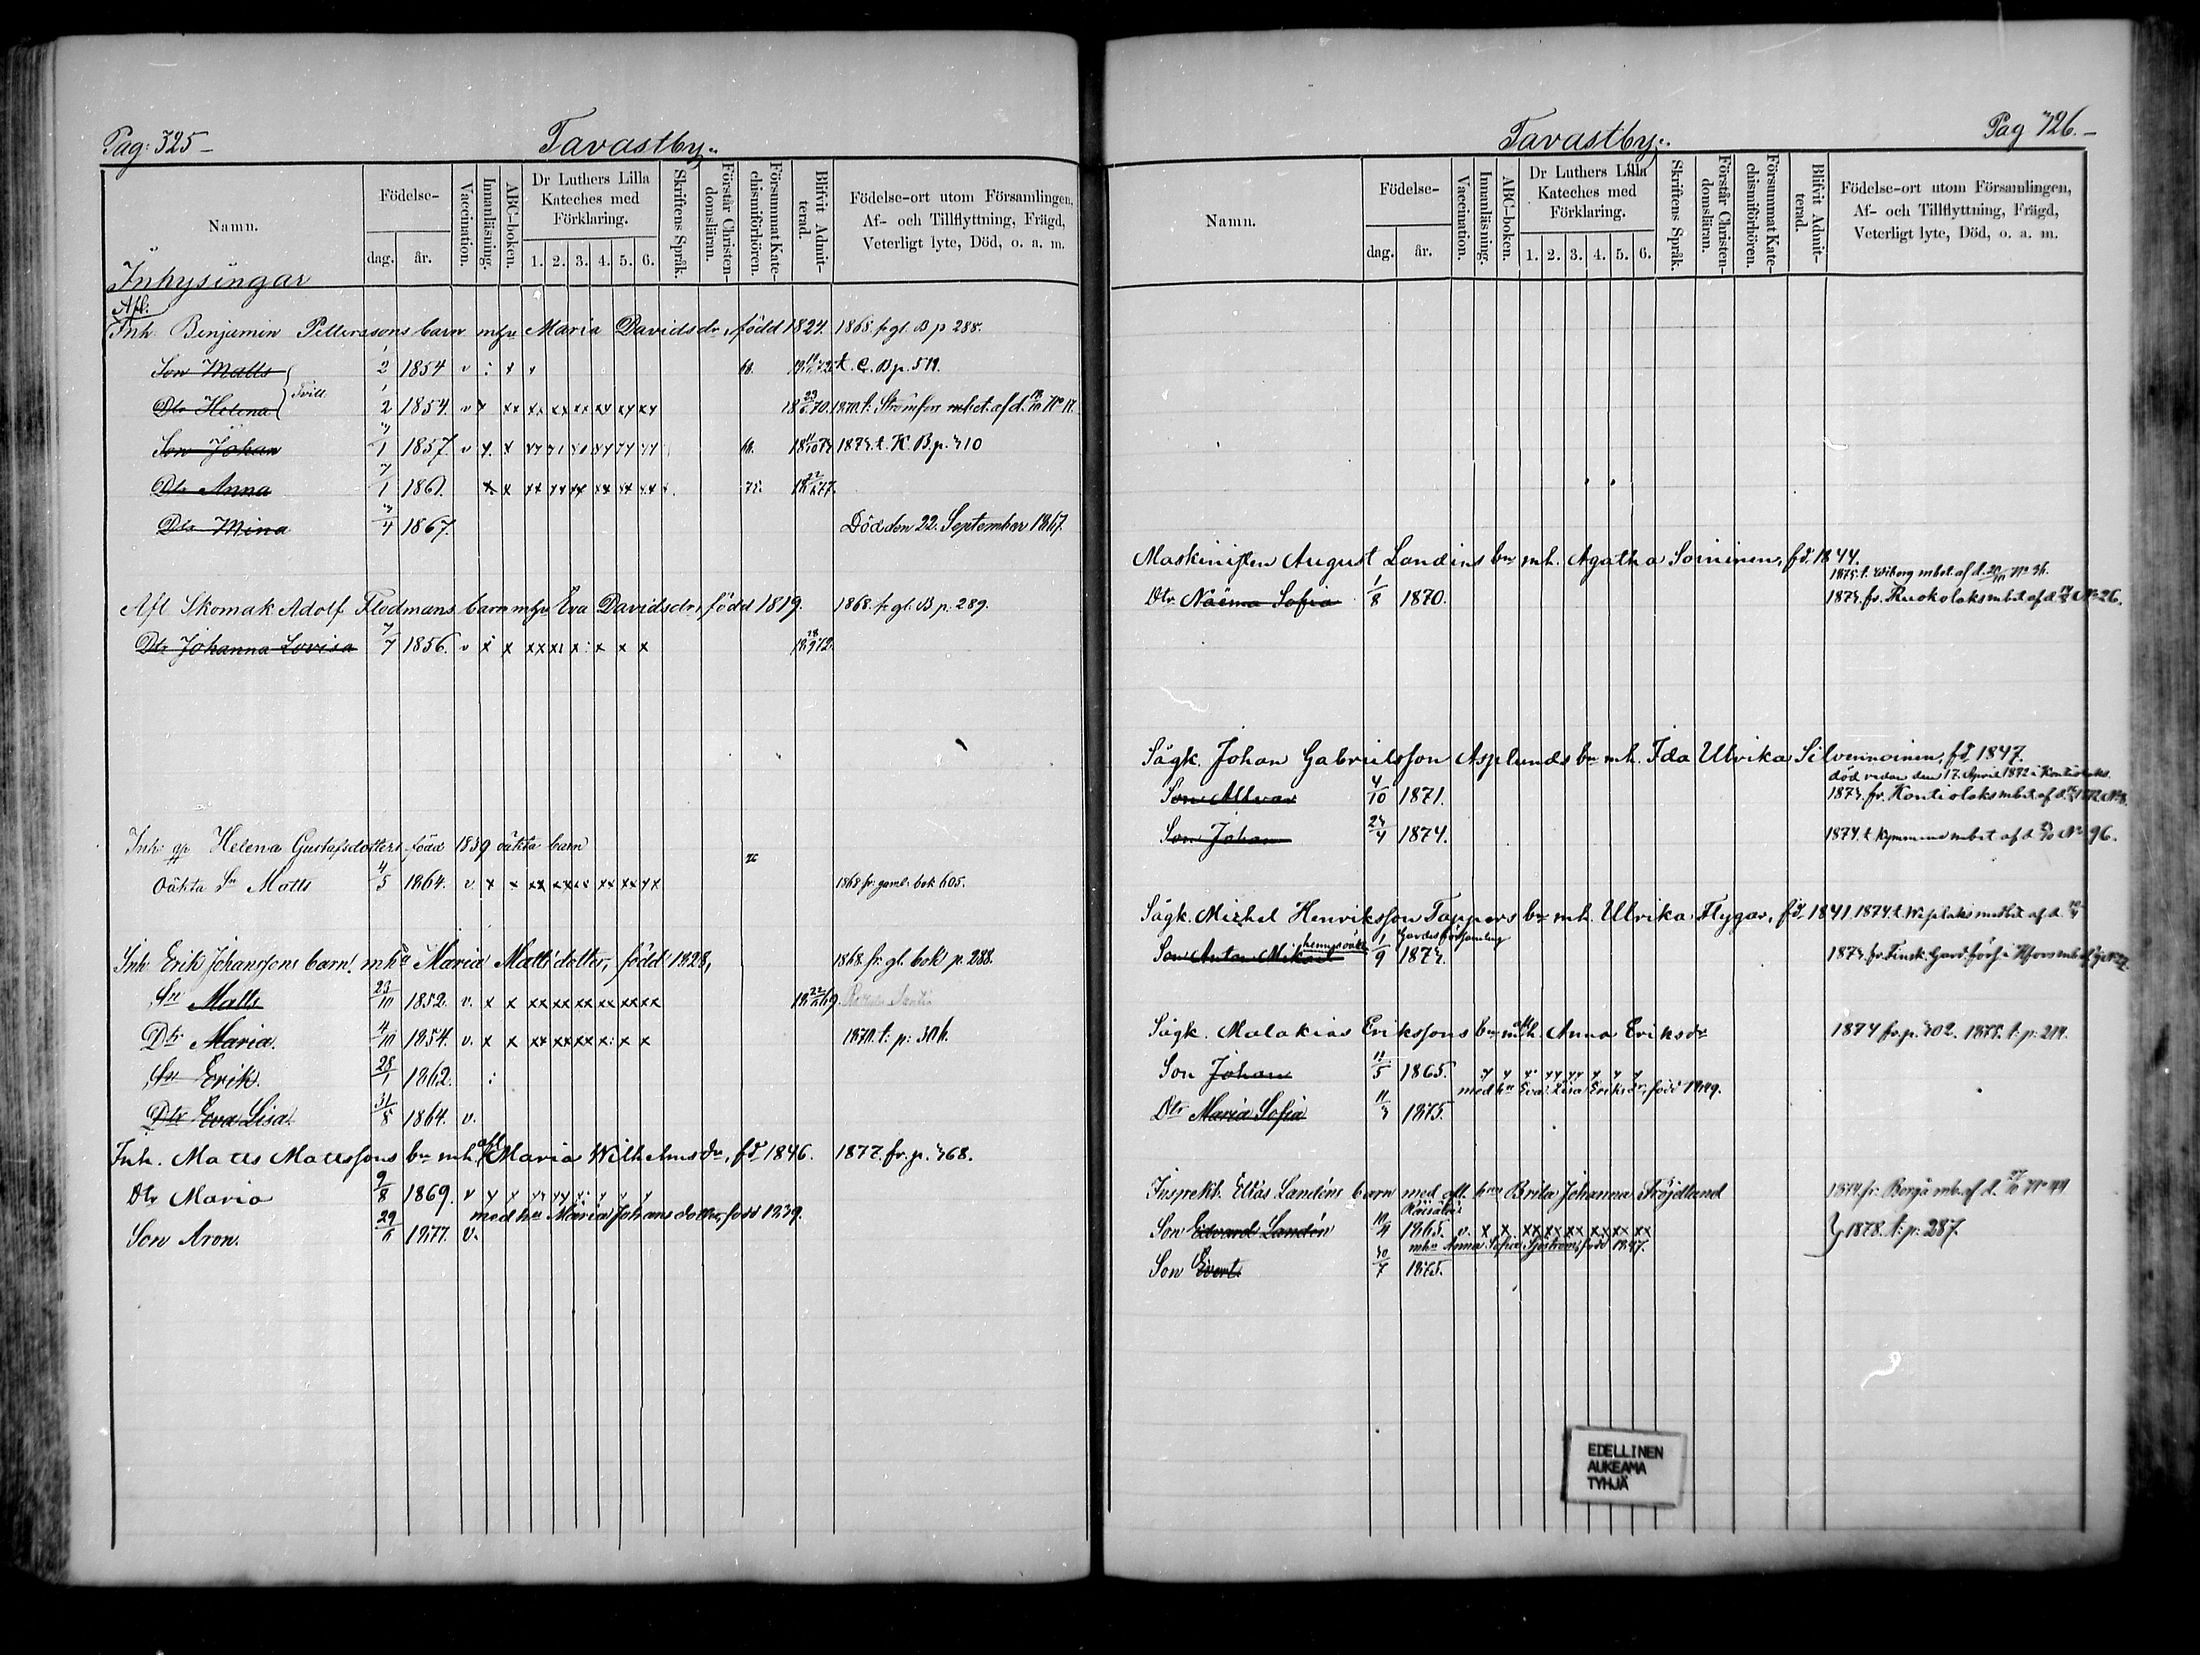 Pag: 325
Tavastby.
Namn.
Födelse-
dag. år.
Vaccination.
Innanläsning.
ABC-boken.
Dr Luthers Lilla
Kateches med
Förklaring.
1. 2. 3. 4. 5. 6.
Skriftens Språk.
Förstår Christen-
domsläran.
Försummat Kate-
chismiförhören.
Blifvit Admit-
terad.
Födelse-ort utom Församlingen,
Af- och Tillflyttning, Frägd,
Veterligt lyte, Död, o. a. m.
Inhysingar
Afl.
Inh. Benjamin Petterssons barn mhu Maria Davidsdr, född 1824. 1868. fr gl. B p 288.
Son Matts 1/2 1854 v t. C. B p. 519.
Tvill.
Dtr Helena 1/2 1854. v 1870. t. Strömfors mbet. af d.
Son Johan 3/1 1857. v 1873. t. K B. p. 310
Dtr Anna 7/1 1861. 75.
Dtr Mina 3/4 1867. Död den 22. September 1867.
Afl Skomak Adolf Flodmans barn mhu Eva Davidsdr, född 1819. 1868. fr gl. B p. 289.
Dtr Johanna Lovisa 7/7 1856. v
Inh: qp Helena Gustafsdotters, född 1839 oäkta barn
Oäkta Sn Matts 4/5 1864. v. 1868. fr. gaml. bok 605.
Inh. Erik Johanssons barn, mhu Maria Mattsdotter, född 1828, 1868. fr. gl. bok p. 288.
Sn Matts 23/10 1852. v.
Dtr Maria. 4/10 1854. v. 1870. t. p:
Sn Erik. 28/1 1862.
Dtr Eva Lisa. 31/8 1864. v.
Inh. Matts Mattssons bn mh. afl Maria Wilhelmsdr, fd 1846. 1877. fr. p. 368.
Dtr Maria 9/8 1869. v
med hu Maria Johansdotter, född 1839.
Son Aron. 29/6 1877. v.
Pag 326.
Tavastby.
Namn.
Födelse-
dag. år.
Vaccination.
Innanläsning.
ABC-boken.
Dr Luthers Lilla
Kateches med
Förklaring.
1. 2. 3. 4. 5. 6.
Skriftens Språk.
Förstår Christen-
domsläran.
Försummat Kate-
chismiförhören.
Blifvit Admit-
terad.
Födelse-ort utom Församlingen,
Af- och Tillflyttning, Frägd,
Veterligt lyte, Död, o. a. m.
Maskinisten August Landins bn mh. Agatha Soininen, fd. 1844.
1875. t. Wiborg mbet. af d.
Dtr Naëma Sofia 1/8 1870. 1873. fr. Ruokolaks mbet af d. No 26.
Sågk. Johan Gabrielsson Asplunds bn mh. Ida Ulrika Silvennoinen, fd. 1847.
död redan den 17. April 1872 i Kontiolaks.
Son Allvar 4/10 1871. 1873. fr. Kontiolaks mbet. af d.
Son Johan 23/4 1874. 1874. t. Kymmene mbet af d. No 96.
Sågk. Michel Henriksson Tappers bn mh. Ulrika Flygar, fd. 1841. 1874. t.
Gardesförsamling
Son Anton Mikael 1/9 1873. 1873. fr. Finsk. Gard. förs. i Hfors
Sågk. Malakias Erikssons bn m. afl h. Anna Eriksdr 1874 fr. p. 302. 1875. t. p. 214.
Son Johan 12/5 1865.
med hu Eva Lisa Eriksdr, född 1849.
Dtr Maria Sofia 11/3 1875
Inspekt. Elias Landéns barn med afl. hun Brita Johanna Fröjdlund 1874. fr. Borgå mb. af d. No 44
Räisälä
Son Edvard Landén 1865. v. } 1878. t. p: 287.
mhu Anna Sofia Sjöström, född 1847.
Son Evert. 30/7 1875.
EDELLINEN
AUKEAMA
TYHJÄ